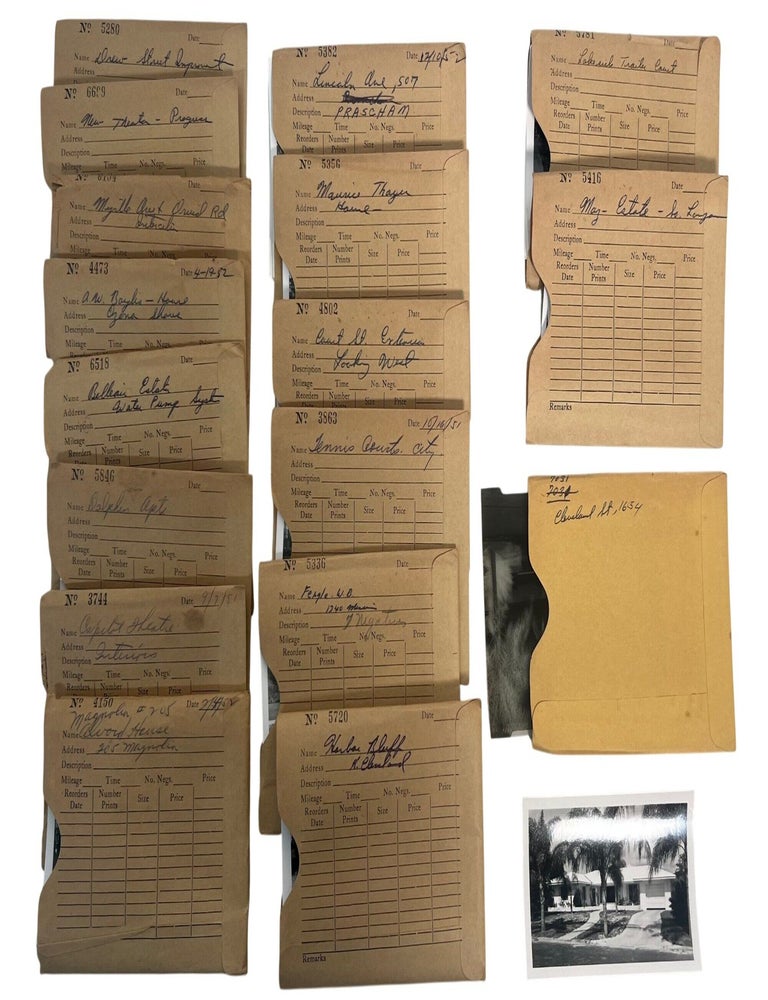 Nº 5280 Date
Name Drew Street Improvmt
Address
Nº 6699
Name New Theater - Progress
Address
Description
Myrtle Ave & Druid Rd
Address
Description
Mileage Time No. Negs. Price
Nº 4473 Date 4-19-52
Name A.W. Baylis - House
Address Ozona Shores
Description
Mileage Time No. Negs. Price
Nº 6518 Date
Name Belleair Estate
Address Water Pump Syst
Description
Mileage Time No. Negs. Price
Nº 5846
Name Dolphin Apts
Address
Description
Mileage Time No. Negs. Price
Reorders Date Number Prints Size Price
Nº 3744 Date 9/7/51
Name Capitol Theatre
Address
Description Interiors
Mileage Time No. Negs. Price
Reorders Number
Nº 4150 Date
Magnolia # 205
Name House
Address 205 Magnolia
Description
Mileage Time No. Negs. Price
Reorders Date Number Prints Size Price
Nº 5382 Date 12/10/52
Name Lincoln Ave, 507
Address
Description PRASCHAM
Mileage Time No. Negs. Price
Reorders Date Number Prints Size Price
Nº 5356
Name Maurice Thayer
Address Home
Description
Mileage Time No. Negs. Price
Reorders Date Number Prints Size Price
Nº 4802
Name Court St. Extension
Address Looking West
Description
Mileage Time No. Negs. Price
Reorders Number
Nº 3863 Date
Name Tennis Courts. City.
Address
Description
Mileage Time No. Negs. Price
Reorders Date Number Prints Size Price
Nº 5336 Date
Name Feagle W.D.
Address 1240
Description 7 Negatives
Mileage Time No. Negs. Price
Reorders Date Number Prints Size Price
Nº 5720 Date
Name Harbor Bluff
Address N. Cleveland
Description
Mileage Time No. Negs. Price
Reorders Date Number Prints Size Price
Remarks
5781
Name Lakeside Trailer Court
Address
Description
Mileage Time No. Negs. Price
Reorders Date Number Prints Size Price
Nº 5416
Name May - Estate - So.
Address
Description
Mileage Time No. Negs. Price
Reorders Date Number Prints Size Price
Remarks
7031
Cleveland St, 1654